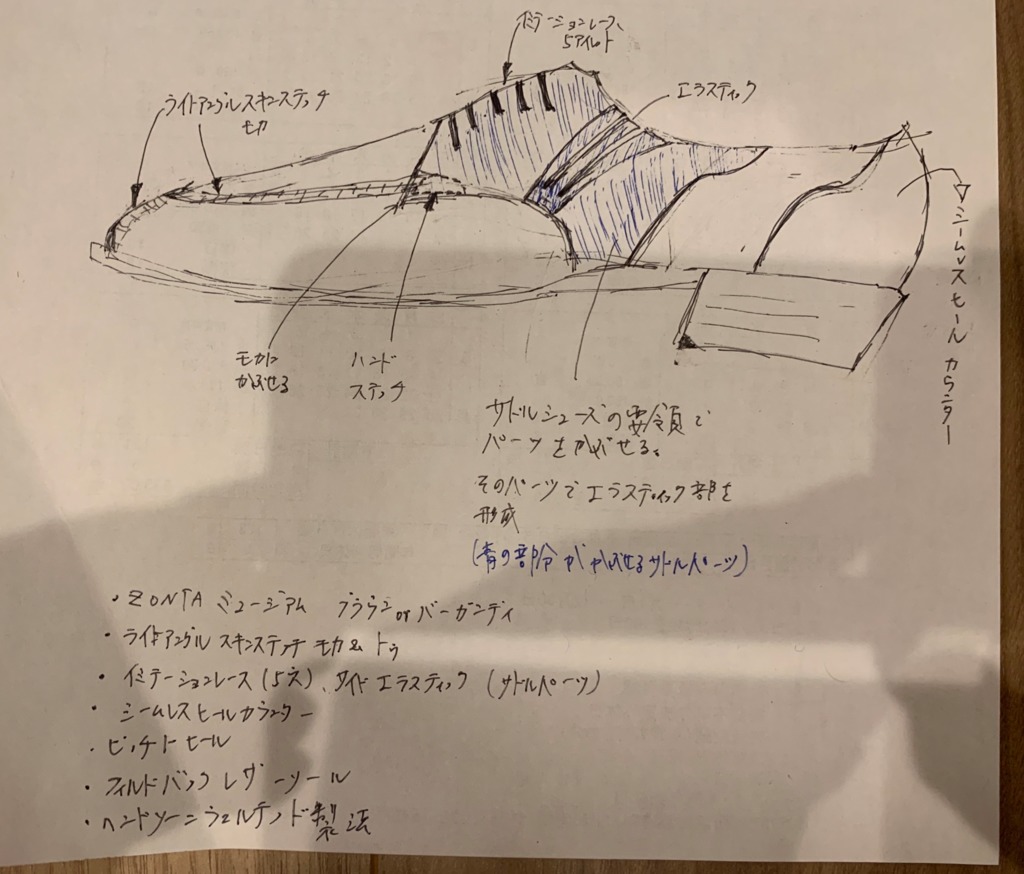 イミテーションレース
5アイレット
エラスティック
ライトアングルスキンステッチ
モカ
シームレスヒールカウンター
モカに
かぶせる
ハンド
ステッチ
サドルシューズの要領で
パーツをかぶせる。
そのパーツでエラスティック部を
形成
(青の部分がかぶせるサドルパーツ)
・ZONTA ミュージアム ブラウン or バーガンディ
・ライトアングルスキンステッチ モカ& トゥ
・イミテーションレース(5穴)、サイドエラスティック(サドルパーツ)
・シームレスヒールカウンター
・ピッチドヒール
・フィドルバックレザーソール
・ハンドソーンウェルテッド製法